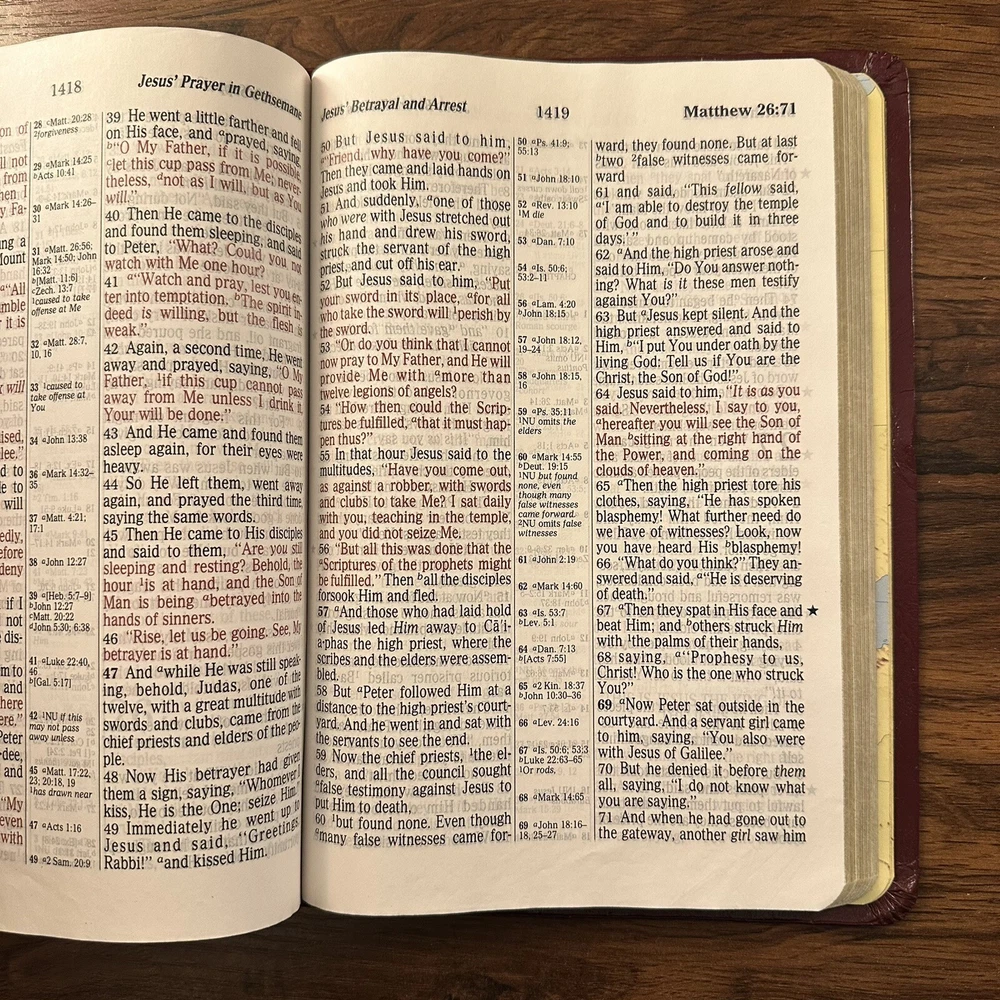 1418
Jesus' Prayer in Gethsemane
on of
ll not
from
hen I
y Fa-
ung a
Mount
"All
mble
r it is
will
ised,
lee."
d to
le to
will
edly,
efore
deny
if I
d not
e dis-
m to
and
here
ere."
Peter
-dee,
and
"My
even
with
28 cMatt. 20:28
2forgiveness
29 aMark 14:25
bActs 10:41
30 aMark 14:26–
31
31 aMatt. 26:56;
Mark 14:50; John
16:32
b[Matt. 11:6]
cZech. 13:7
1caused to take
offense at Me
32 aMatt. 28:7,
10, 16
33 1caused to
take offense at
You
34 aJohn 13:38
36 aMark 14:32–
35
37 aMatt. 4:21;
17:1
38 aJohn 12:27
39 a[Heb. 5:7–9]
bJohn 12:27
cMatt. 20:22
dJohn 5:30; 6:38
41 aLuke 22:40,
46
b[Gal. 5:17]
42 1NU if this
may not pass
away unless
45 aMatt. 17:22,
23; 20:18, 19
1has drawn near
47 aActs 1:16
49 a2 Sam. 20:9
39 He went a little farther and fell
on His face, and aprayed, saying,
b"O My Father, if it is possible,
clet this cup pass from Me; never-
theless, dnot as I will, but as You
will."
40 Then He came to the disciples
and found them sleeping, and said
to Peter, "What? Could you not
watch with Me one hour?
41 a"Watch and pray, lest you en-
ter into temptation. bThe spirit in-
deed is willing, but the flesh is
weak."
42 Again, a second time, He went
away and prayed, saying, "O My
Father, 1if this cup cannot pass
away from Me unless I drink it,
Your will be done."
43 And He came and found them
asleep again, for their eyes were
heavy.
44 So He left them, went away
again, and prayed the third time,
saying the same words.
45 Then He came to His disciples
and said to them, "Are you still
sleeping and resting? Behold, the
hour 1is at hand, and the Son of
Man is being abetrayed into the
hands of sinners.
46 "Rise, let us be going. See, My
betrayer is at hand."
47 And awhile He was still speak-
ing, behold, Judas, one of the
twelve, with a great multitude with
swords and clubs, came from the
chief priests and elders of the peo-
ple.
48 Now His betrayer had given
them a sign, saying, "Whomever I
kiss, He is the One; seize Him."
49 Immediately he went up to
Jesus and said, "Greetings,
Rabbi!" aand kissed Him.
Jesus' Betrayal and Arrest
1419
Matthew 26:71
50 But Jesus said to him,
a"Friend, why have you come?"
Then they came and laid hands on
Jesus and took Him.
51 And suddenly, aone of those
who were with Jesus stretched out
his hand and drew his sword,
struck the servant of the high
priest, and cut off his ear.
52 But Jesus said to him, "Put
your sword in its place, afor all
who take the sword will 1perish by
the sword.
53 "Or do you think that I cannot
now pray to My Father, and He will
provide Me with amore than
twelve legions of angels?
54 "How then could the Scrip-
tures be fulfilled, athat it must hap-
pen thus?"
55 In that hour Jesus said to the
multitudes, "Have you come out,
as against a robber, with swords
and clubs to take Me? I sat daily
with you, teaching in the temple,
and you did not seize Me.
56 "But all this was done that the
aScriptures of the prophets might
be fulfilled." Then ball the disciples
forsook Him and fled.
57 aAnd those who had laid hold
of Jesus led Him away to Cā'i-
a·phas the high priest, where the
scribes and the elders were assem-
bled.
58 But aPeter followed Him at a
distance to the high priest's court-
yard. And he went in and sat with
the servants to see the end.
59 Now the chief priests, 1the el-
ders, and all the council sought
afalse testimony against Jesus to
put Him to death,
60 1but found none. Even though
amany false witnesses came for-
50 aPs. 41:9;
55:13
51 aJohn 18:10
52 aRev. 13:10
1M die
53 aDan. 7:10
54 aIs. 50:6;
53:2–11
56 aLam. 4:20
bJohn 18:15
57 aJohn 18:12,
19–24
58 aJohn 18:15,
16
59 aPs. 35:11
1NU omits the
elders
60 aMark 14:55
bDeut. 19:15
1NU but found
none, even
though many
false witnesses
came forward.
2NU omits false
witnesses
61 aJohn 2:19
62 aMark 14:60
63 aIs. 53:7
bLev. 5:1
64 aDan. 7:13
b[Acts 7:55]
65 a2 Kin. 18:37
bJohn 10:30–36
66 aLev. 24:16
67 aIs. 50:6; 53:3
bLuke 22:63–65
1Or rods,
68 aMark 14:65
69 aJohn 18:16–
18, 25–27
ward, they found none. But at last
btwo 2false witnesses came for-
ward
61 and said, "This fellow said,
a'I am able to destroy the temple
of God and to build it in three
days.' "
62 aAnd the high priest arose and
said to Him, "Do You answer noth-
ing? What is it these men testify
against You?"
63 But aJesus kept silent. And the
high priest answered and said to
Him, b"I put You under oath by the
living God: Tell us if You are the
Christ, the Son of God!"
64 Jesus said to him, "It is as you
said. Nevertheless, I say to you,
ahereafter you will see the Son of
Man bsitting at the right hand of
the Power, and coming on the
clouds of heaven."
65 aThen the high priest tore his
clothes, saying, "He has spoken
blasphemy! What further need do
we have of witnesses? Look, now
you have heard His bblasphemy!
66 "What do you think?" They an-
swered and said, a"He is deserving
of death."
67 aThen they spat in His face and ★
beat Him; and bothers struck Him
with 1the palms of their hands,
68 saying, a"Prophesy to us,
Christ! Who is the one who struck
You?"
69 aNow Peter sat outside in the
courtyard. And a servant girl came
to him, saying, "You also were
with Jesus of Galilee."
70 But he denied it before them
all, saying, "I do not know what
you are saying."
71 And when he had gone out to
the gateway, another girl saw him